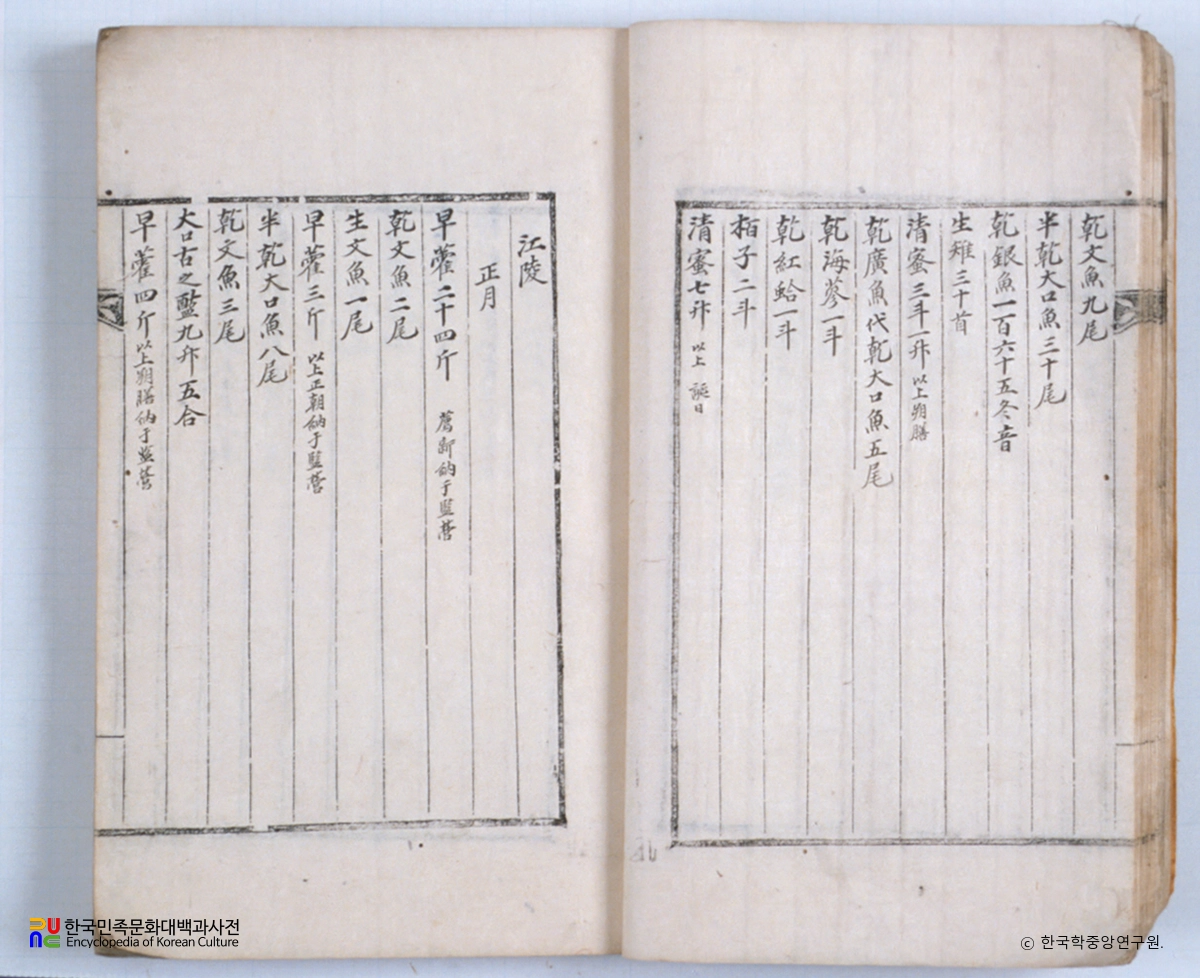 乾文魚九尾
半乾大口魚三十尾
乾銀魚一百六十五冬音
生雉三十首
清蜜三斗一升 以上朔膳
乾廣魚代乾大口魚五尾
乾海蔘一斗
乾紅蛤一斗
栢子二斗
清蜜七升 以上 誕日
江陵
正月
早藿二十四斤 薦新納于監營
乾文魚二尾
生文魚一尾
早藿三斤 以上正朝納于監營
半乾大口魚八尾
乾文魚三尾
大口古之醢九升五合
早藿四斤 以上朔膳納于監營
한국민족문화대백과사전
Encyclopedia of Korean Culture
© 한국학중앙연구원.